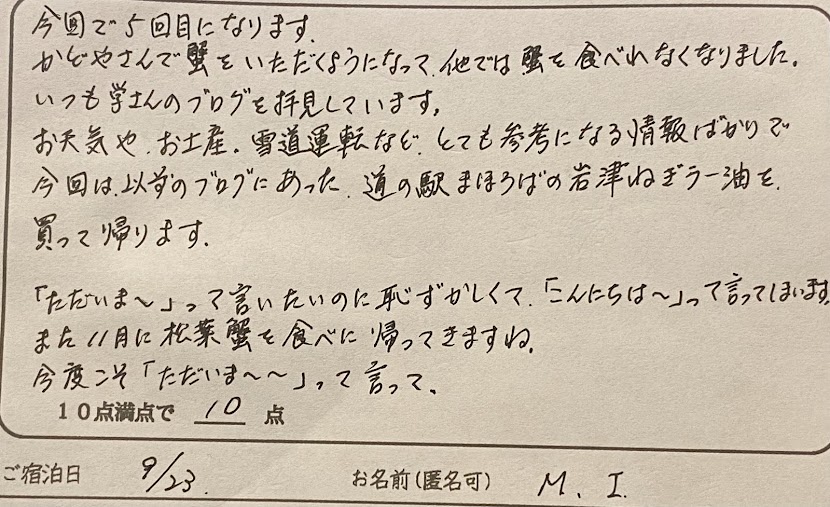 今回で5回目になります。
かどやさんで蟹をいただくようになって、他では蟹を食べれなくなりました。
いつも学さんのブログを拝見しています。
お天気や、お土産、雪道運転など、とても参考になる情報ばかりで
今回は、以前のブログにあった、道の駅まほろばの岩津ねぎラー油を、
買って帰ります。
「ただいま〜」って言いたいのに恥ずかしくて、「こんにちは〜」って言ってしまいます
また11月に松葉蟹を食べに帰ってきますね。
今度こそ「ただいま〜〜」って言って。
10点満点で 10 点
ご宿泊日 9/23. お名前(匿名可) M. I.